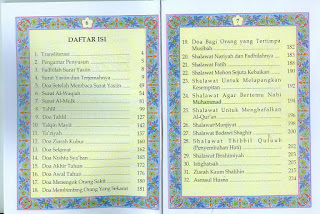 DAFTAR ISI
1. Transliterasi 4
2. Pengantar Penyusun 5
3. Fadhilah Surat Yasin
4. Surat Yasin dan Terjemahnya
5. Doa Setelah Membaca Surat Yasin
6. Surat Al-Waqiah
7. Surat Al-Mulk
8. Tahlil
9. Doa Tahlil 127
10. Talqin Mayit 142
11. Ta'ziyah 157
12. Doa Ziarah Kubur 160
13. Doa Selamat 162
14. Doa Nishfu Sya'ban 165
15. Doa Akhir Tahun 172
16. Doa Awal Tahun 176
17. Doa Menengok Orang Sakit 180
18. Doa Membimbing Orang Yang Sekarat 181
19. Doa Bagi Orang yang Tertimpa
Musibah 182
20. Shalawat Nariyah dan Fadhilahnya 183
21. Shalawat Fatih 188
22. Shalawat Mohon Sejuta Kebaikan 190
23. Shalawat Untuk Melapangkan
Kesempitan 192
24. Shalawat Agar Bertemu Nabi
Muhammad 194
25. Shalawat Untuk Menghafalkan
Al-Qur'an 196
26. Shalawat Munjiyat
27. Shalawat Badawi Shaghir 200
28. Shalawat Thibbil Qulub
(Penyembuhan Hati) 202
29. Shalawat Ibrahimiyah
30. Istighatsah
31. Ziarah Kaum Shalihin
32. Asmaul Husna 214